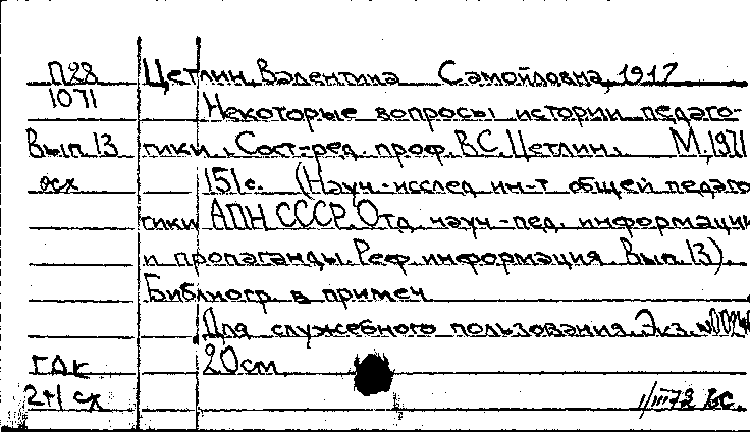 П28 Цетлин, Валентина Самойловна, 1917
1071 Некоторые вопросы истории педаго-
Вып.13 гики. Сост.-ред. проф. В.С.Цетлин. М.,1971
осх 151с. (Науч.-исслед ин-т общей педаго
гики АПН СССР. Отд. науч-пед. информации
и пропаганды. Реф. информация. Вып. 13).
Библиогр. в примеч
Для служебного пользования. Экз.
ГДК 20см.
2+1 сх 1/III72 ВС.